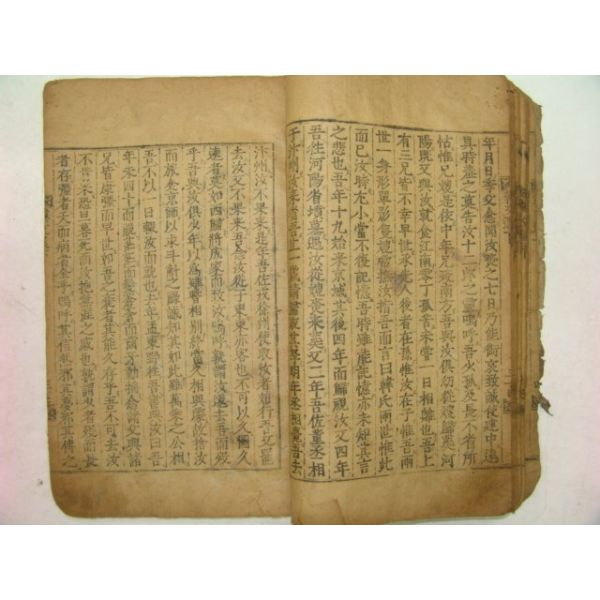 年月日季父愈聞汝喪之七日乃能銜哀致誠使建中遠
具時羞之奠告汝十二郎之靈嗚呼吾少孤及長不省所
怙惟兄嫂是依中年兄歿南方吾與汝俱幼從嫂歸葬河
陽既又與汝就食江南零丁孤苦未嘗一日相離也吾上
有三兄皆不幸早世承先人後者在孫惟汝在子惟吾兩
世一身形單影隻嫂嘗撫汝指吾而言曰韓氏兩世惟此
而已汝時尤小當不復記憶吾時雖能記憶亦未知其言
之悲也吾年十九始來京城其後四年而歸視汝又四年
吾往河陽省墳墓遇汝從嫂喪來葬又二年吾佐董丞相
于汴州汝來省吾止一歲請歸取其孥明年丞相薨吾去
汴州汝不果來是年吾佐戎徐州使取汝者始行吾又罷
去汝又不果來吾念汝從于東東亦客也不可以久圖久
遠者莫如西歸將成家而致汝嗚呼孰謂汝遽去吾而歿
乎吾與汝俱少年以為雖暫相別終當久相與處故捨汝
而旅食京師以求斗斛之祿誠知其如此雖萬乘之公相
吾不以一日輟汝而就也去年孟東野往吾書與汝曰吾
年未四十而視茫茫而髮蒼蒼而齒牙動搖念諸父與諸
兄皆康彊而早世如吾之衰者其能久存乎吾不可去汝
不肯來恐旦暮死而汝抱無涯之戚也孰謂少者歿而長
者存彊者夭而病者全乎嗚呼其信然邪其夢邪其傳之